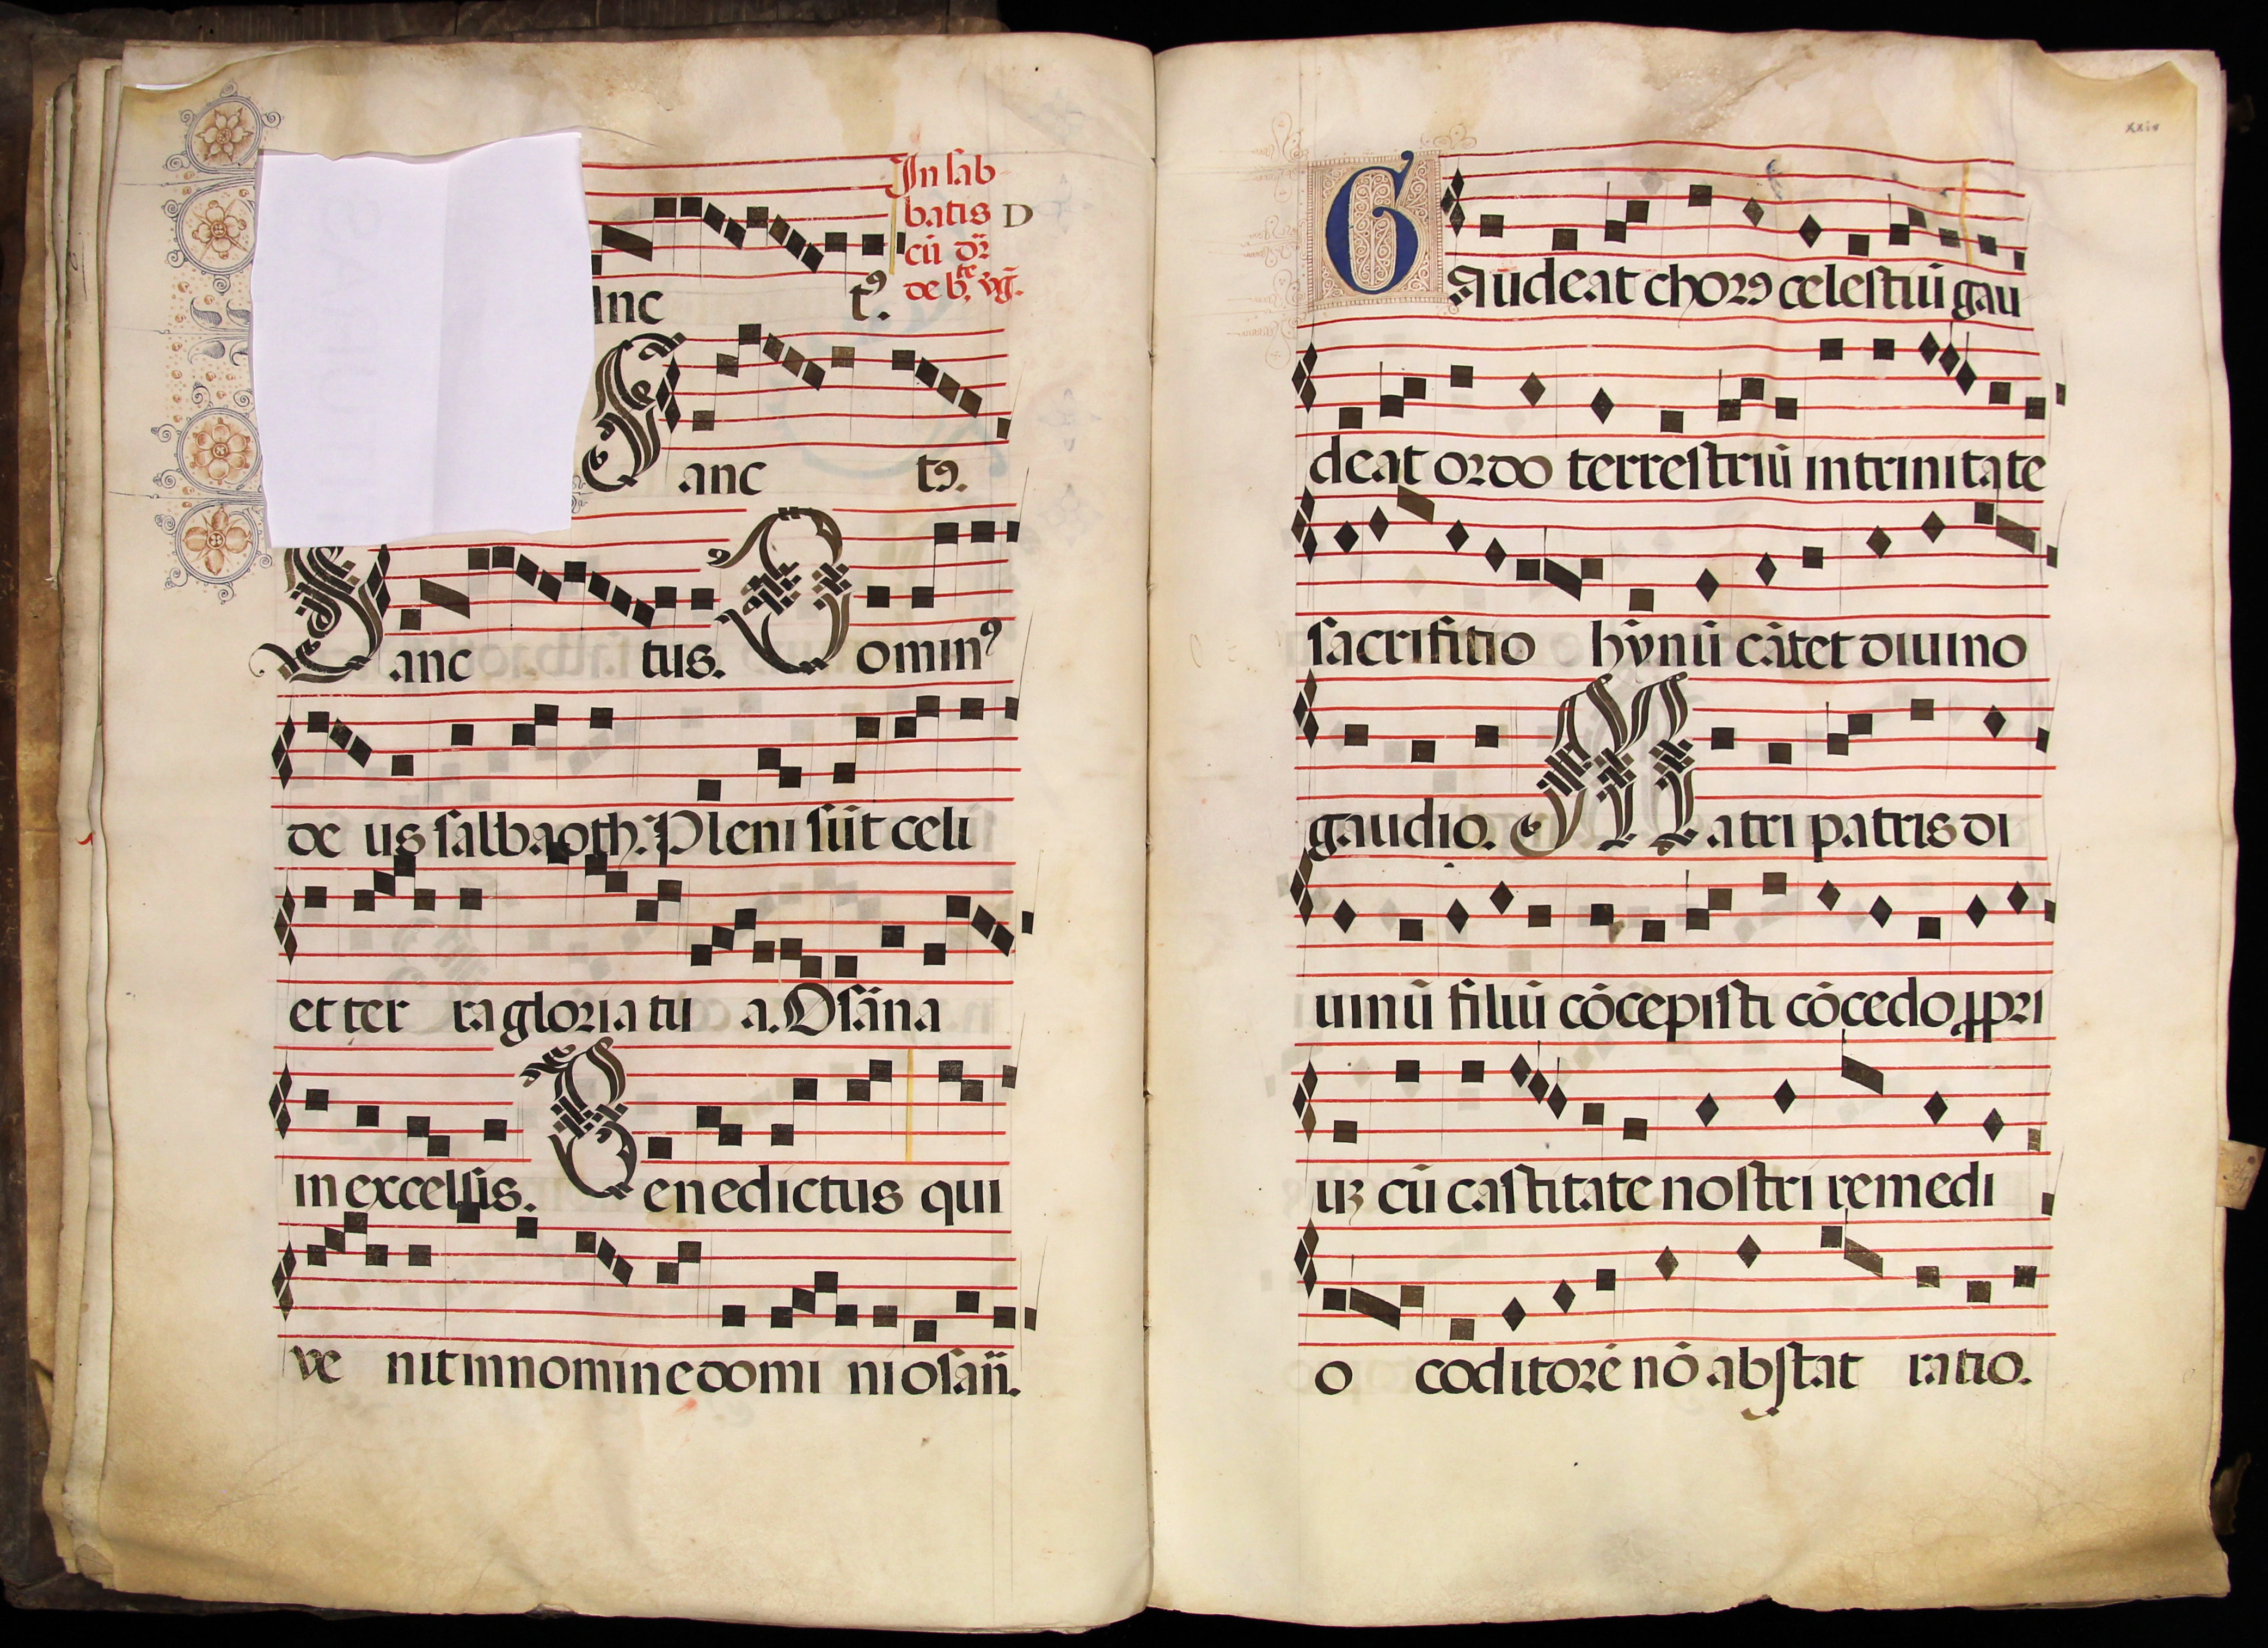 In sab
batis D
cū dr̄
de bt̄e vḡ.
anc tꝰ.
Sanc tꝰ.
Sanc tus. Dominꝰ
de us salbaoth. Pleni sūt celi
et ter ra gloria tu a. Osāna
in excelsis. Benedictus qui
ve nit in nomine domi ni osan̄.
xxiv
Gaudeat chorꝰ celestiū gau
deat ordo terrestriū in trinitate
sacrifitio hỹnū cātet diuino
gaudio. Matri patris di
uinū filiū cōcepisti cōcedo ꝓpri
uȝ cū castitate nostri remedi
o coditorē nō abstat ratio.